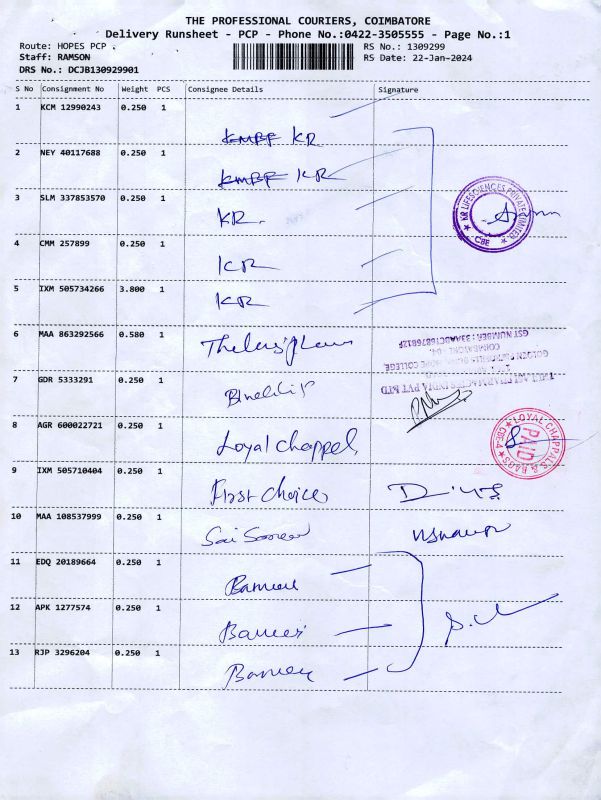 THE PROFESSIONAL COURIERS, COIMBATORE
Delivery Runsheet - PCP - Phone No.:0422-3505555 - Page No.:1
Route: HOPES PCP . RS No.: 1309299
Staff: RAMSON RS Date: 22-Jan-2024
DRS No.: DCJB130929901
S No Consignment No Weight PCS Consignee Details Signature
1 KCM 12990243 0.250 1
KR
2 NEY 40117688 0.250 1
KR
3 SLM 337853570 0.250 1
KR.
4 CMM 257899 0.250 1
KR
5 IXM 505734266 3.800 1
KR
KR LIFESCIENCES PRIVATE LIMITED
CBE
6 MAA 863292566 0.580 1
GST NUMBER : 33AABC
COIMBATORE -04.
COLLEGE
INDIA PVT LTD
7 GDR 5333291 0.250 1
8 AGR 600022721 0.250 1
Loyal Chappel
LOYAL CHAPPALS & BAGS
PAID
CBE-4
9 IXM 505710404 0.250 1
First choice
10 MAA 108537999 0.250 1
Sai
11 EDQ 20189664 0.250 1
12 APK 1277574 0.250 1
13 RJP 3296204 0.250 1